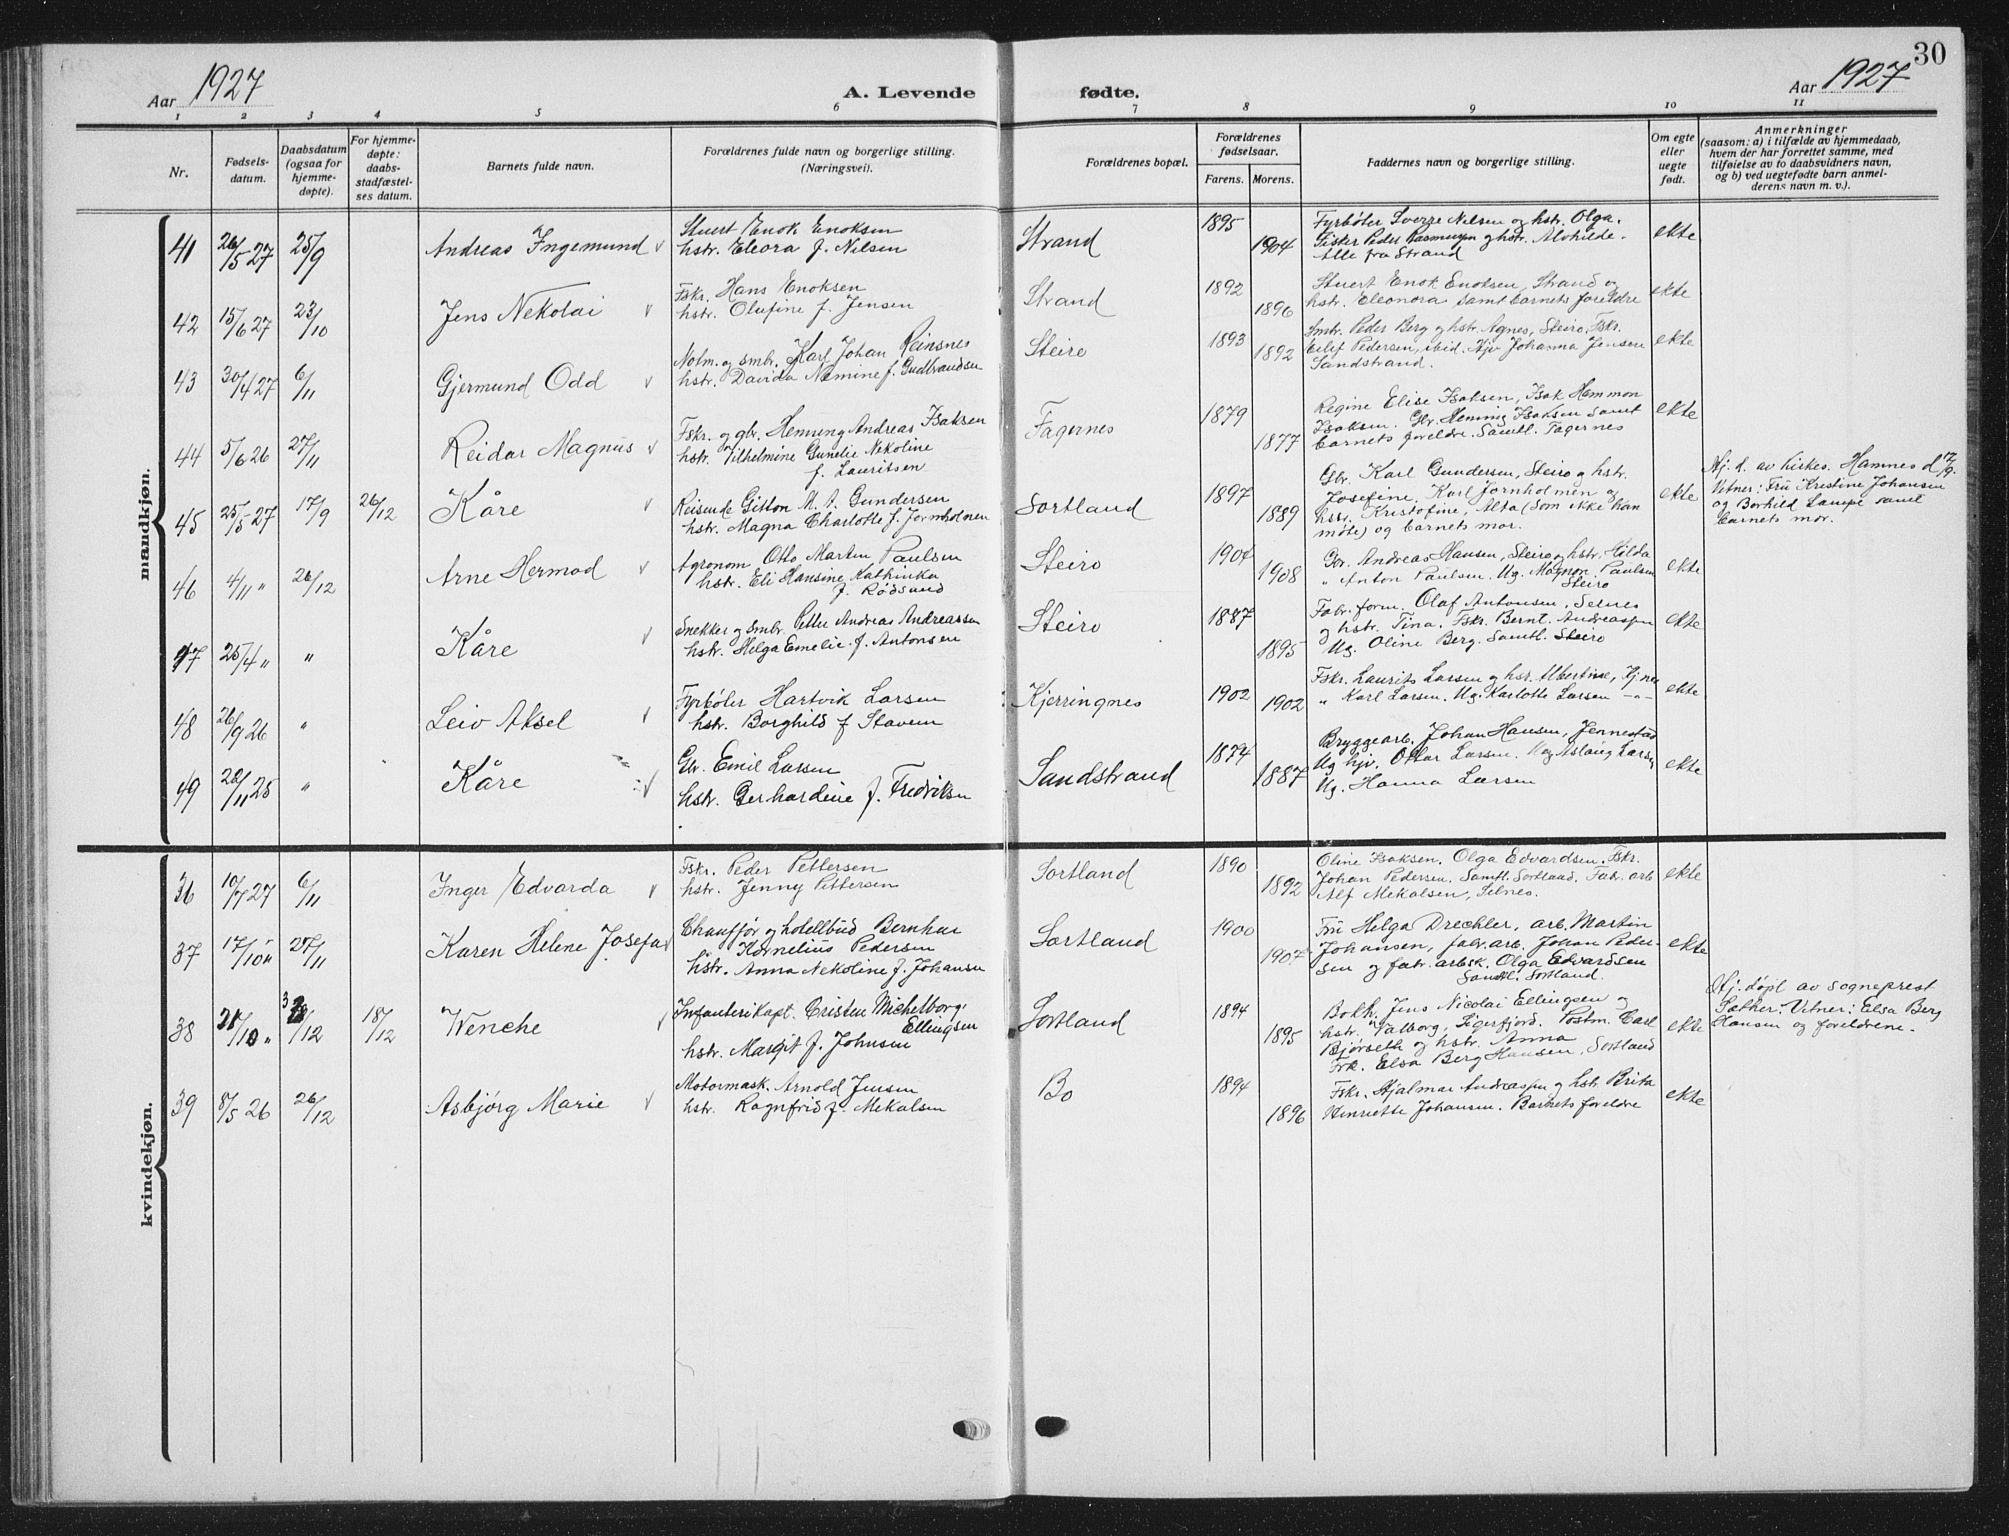 30
Aar 1927
A. Levende fødte.
Aar 1927
1 2 3 4 5 6 7 8 9 10 11
Nr.
Fødsels-
datum.
Daabsdatum
(ogsaa for
hjemme-
døpte).
For hjemme-
døpte:
daabs-
stadfæstel-
ses datum.
Barnets fulde navn.
Forældrenes fulde navn og borgerlige stilling.
(Næringsvei).
Forældrenes bopæl.
Forældrenes
fødselsaar.
Farens. Morens.
Faddernes navn og borgerlige stilling.
Om egte
eller
uegte
født.
Anmerkninger
(saasom: a) i tilfælde av hjemmedaab,
hvem der har forrettet samme, med
tilføielse av to daabsvidners navn,
og b) ved uegtefødte barn anmel-
derens navn m. v.).
mandkjøn.
41 26/5 27 25/9 Andreas Ingemund
Stuert Enok Enoksen
hstr. Eleora f. Nilsen
Strand 1895 1904
Fyrbøter Sverre Nilsen og hstr. Olga.
Fisker Peder Rasmussen og hstr. Alvhilde.
Alle fra Strand
ekte
42 15/6 27 23/10 Jens Nekolai
Fskr. Hans Enoksen
hstr. Olufine f. Jensen
Strand 1892 1896
Stuert Enok Enoksen, Strand og
hstr. Eleonora samt barnets foreldre
ekte
43 30/4 27 6/11 Gjermund Odd
Notm. og smbr. Karl Johan Reinsnes
hstr. Davida Nemine f. Gudbrandsen
Steiro 1893 1892
Smbr. Peder Berg og hstr. Agnes, Steiro. Fskr.
Eilif Pedersen, ibid. Hjv Johanna Jensen
Sandstrand.
ekte
44 5/6 26 27/11 Reidar Magnus
Fskr. og gbr. Henning Andreas Isaksen
hstr. Vilhelmine Gunelie Nekoline
f. Lauritsen
Fagernes 1879 1877
Regine Elise Isaksen, Isak Hemmon
Isaksen. Gbr. Henning Isaksen samt
barnets foreldre. Samtl. Fagernes
ekte
45 25/5 27 17/9 26/12 Kåre
Reisende Gitton M. A. Gundersen
hstr. Magna Charlotte f. Jornholmen
Sortland 1897 1889
Gbr. Karl Gundersen, Steiro og hstr.
Josefine, Karl Jornholmen og
hstr. Kristofine, Alta (som ikke kan
møte) og barnets mor.
ekte
Hj. d. av kirkes. Hamnes d 17/9.
Vitner: Fru Kristine Johansen
og Borhild Lampe samt
barnets mor.
46 4/11 " 26/12 Arne Hermod
Agronom Otto Martin Paulsen
hstr. Eli Hansine Kathinka
f. Rødsand
Steiro 1904 1908
Gbr. Andreas Hansen, Steiro og hstr. Hilda
" Anton Paulsen. Ug. Magnon Paulsen
Steiro
ekte
47 25/4 " " Kåre
Snekker og smbr. Petter Andreas Andreassen
hstr. Helga Emelie f. Antonsen
Steiro 1887 1895
Fabr. form. Olaf Antonsen, Selnes
og hstr. Tina. Fskr. Bernt Andreassen
Ug. Oline Berg. Samtl. Steiro
ekte
48 26/9 26 " Leiv Aksel
Fyrbøter Hartvik Larsen
hstr. Borghild f Stavem
Kjerringnes 1902 1902
Fskr. Laurits Larsen og hstr Albertine, Kj.nes
" Karl Larsen. Ug. Karlotte Larsen -"-
ekte
49 28/11 25 " Kåre
Gbr. Emil Larsen
hstr. Gerhardine f. Fredriksen
Sandstrand 1874 1887
Bryggearb. Johan Hansen, Jennestad
Ug hjv. Ottar Larsen. Ug Aslaug Larsen
Ug. Hanna Larsen
ekte
kvindekjøn.
36 10/7 27 6/11 Inger Edvarda
Fskr. Peder Pettersen
hstr. Jenny Pettersen
Sortland 1890 1892
Oline Isaksen. Olga Edvardsen. Fskr.
Johan Pedersen. Samtl. Sortland. Fabr. arb
Alf Mekalsen, Selnes.
ekte
37 17/10 " 27/11 Karen Helene Josefa
Chauffør og hotellbud Bernhar
Kornelius Pedersen
hstr. Anna Nekoline f. Johansen
Sortland 1900 1907
Fru Helga Drechler, arb. Martin
Johansen, fabr. arb. Johan Peder-
sen og fabr. arbsk. Olga Edvardsen
Samtl. Sortland.
ekte
38 /10 " /12 18/12 Wenche
Infanterikapt. Cristen Michelborg
Ellingsen
hstr. Margit f. Johnsen
Sortland 1894 1895
Bokh. Jens Nicolai Ellingsen og
hstr. Valborg, Sigerfjord. Postm. Carl
Bjørseth og hstr. Anna
Frk. Elsa Berg Hansen, Sortland
ekte
Hj. døpt av sogneprest
Sæther. Vitner: Elsa Berg
Hansen og foreldrene.
39 8/5 26 26/12 Asbjørg Marie
Motormask. Arnold Jensen
hstr. Ragnfrid f. Mekalsen
Bo 1894 1896
Fskr. Hjalmar Andreassen og hstr Brita
Henriette Johansen. Barnets foreldre
ekte